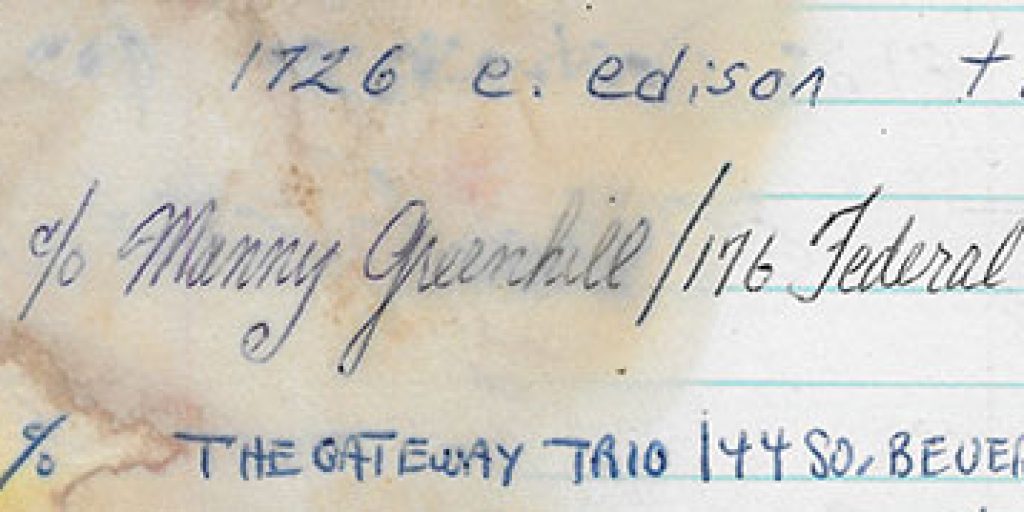 1726 e. edison t.
c/o Manny Greenhill / 176 Federal
c/o THE GATEWAY TRIO | 44 SO. BEVER